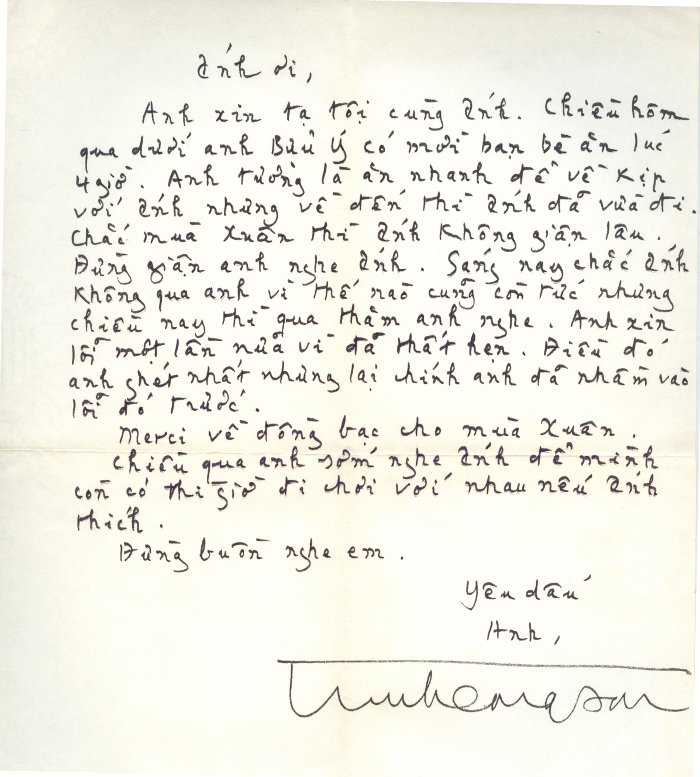 Ánh ơi,
Anh xin tạ tội cùng Ánh. Chiều hôm
qua dưới anh Bửu Ý có mời bạn bè ăn lúc
4giờ. Anh tưởng là ăn nhanh để về kịp
với Ánh nhưng về đến thì Ánh đã vừa đi.
Chắc mùa Xuân thì Ánh không giận lâu.
Đừng giận anh nghe Ánh. Sáng nay chắc Ánh
không qua anh vì thế nào cũng còn tức nhưng
chiều nay thì qua thăm anh nghe. Anh xin
lỗi một lần nữa vì đã thất hẹn. Điều đó
anh ghét nhất nhưng lại chính anh đã nhầm vào
lỗi đó trước.
Merci về đồng bạc cho mùa Xuân.
Chiều qua anh sớm nghe Ánh để mình
còn có thì giờ đi chơi với nhau nếu Ánh
thích.
Đừng buồn nghe em.
Yêu dấu
Anh,
Trinhcongson